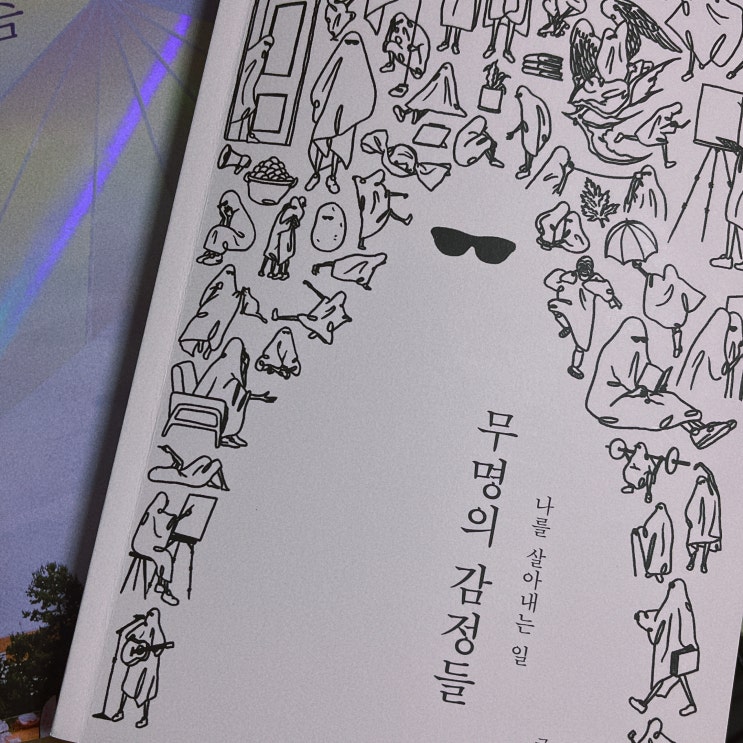 무명의 감정들
나를 살아내는 일